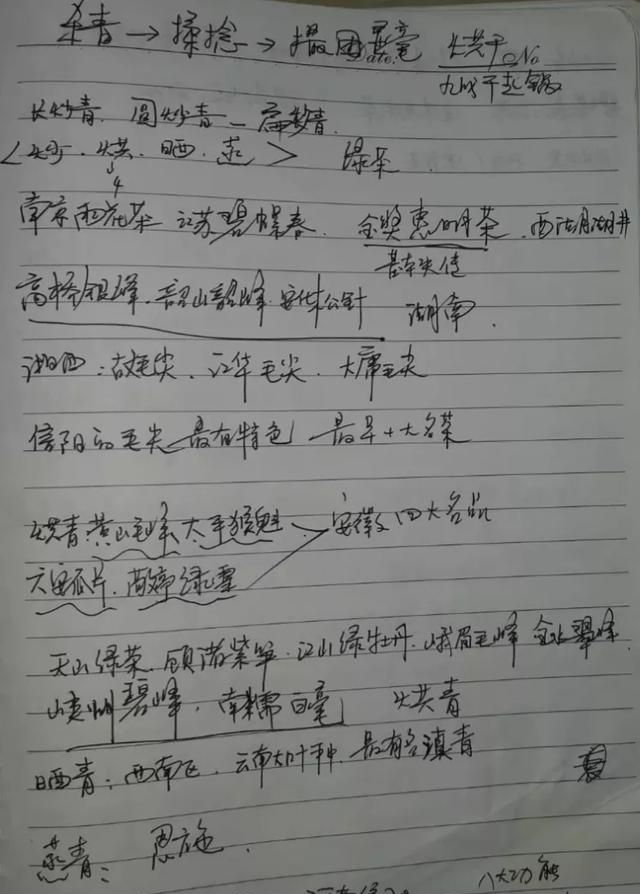 杀青→揉捻→搓团显毫 烘干
Date. No
九成干起锅
长炒青 圆炒青 扁炒青
<炒、烘、晒、蒸> 绿茶
4
南京雨花茶 江苏碧螺春、金奖惠明茶、西湖龙井
高桥银峰、韶山韶峰、安化松针 湖南、
湘西:古丈毛尖、江华毛尖、大庸毛尖
信阳的毛尖 最有特色 最早十大名茶
烘青:黄山毛峰、太平猴魁、 安徽 四大名品
六安瓜片、敬亭绿雪
天山绿茶、顾渚紫笋、江山绿牡丹、峨眉毛峰 金水翠峰
峡州碧峰、南糯白毫 烘青
晒青:西南区、云南大叶种、最有名滇青
蒸青: 恩施、
八大功能